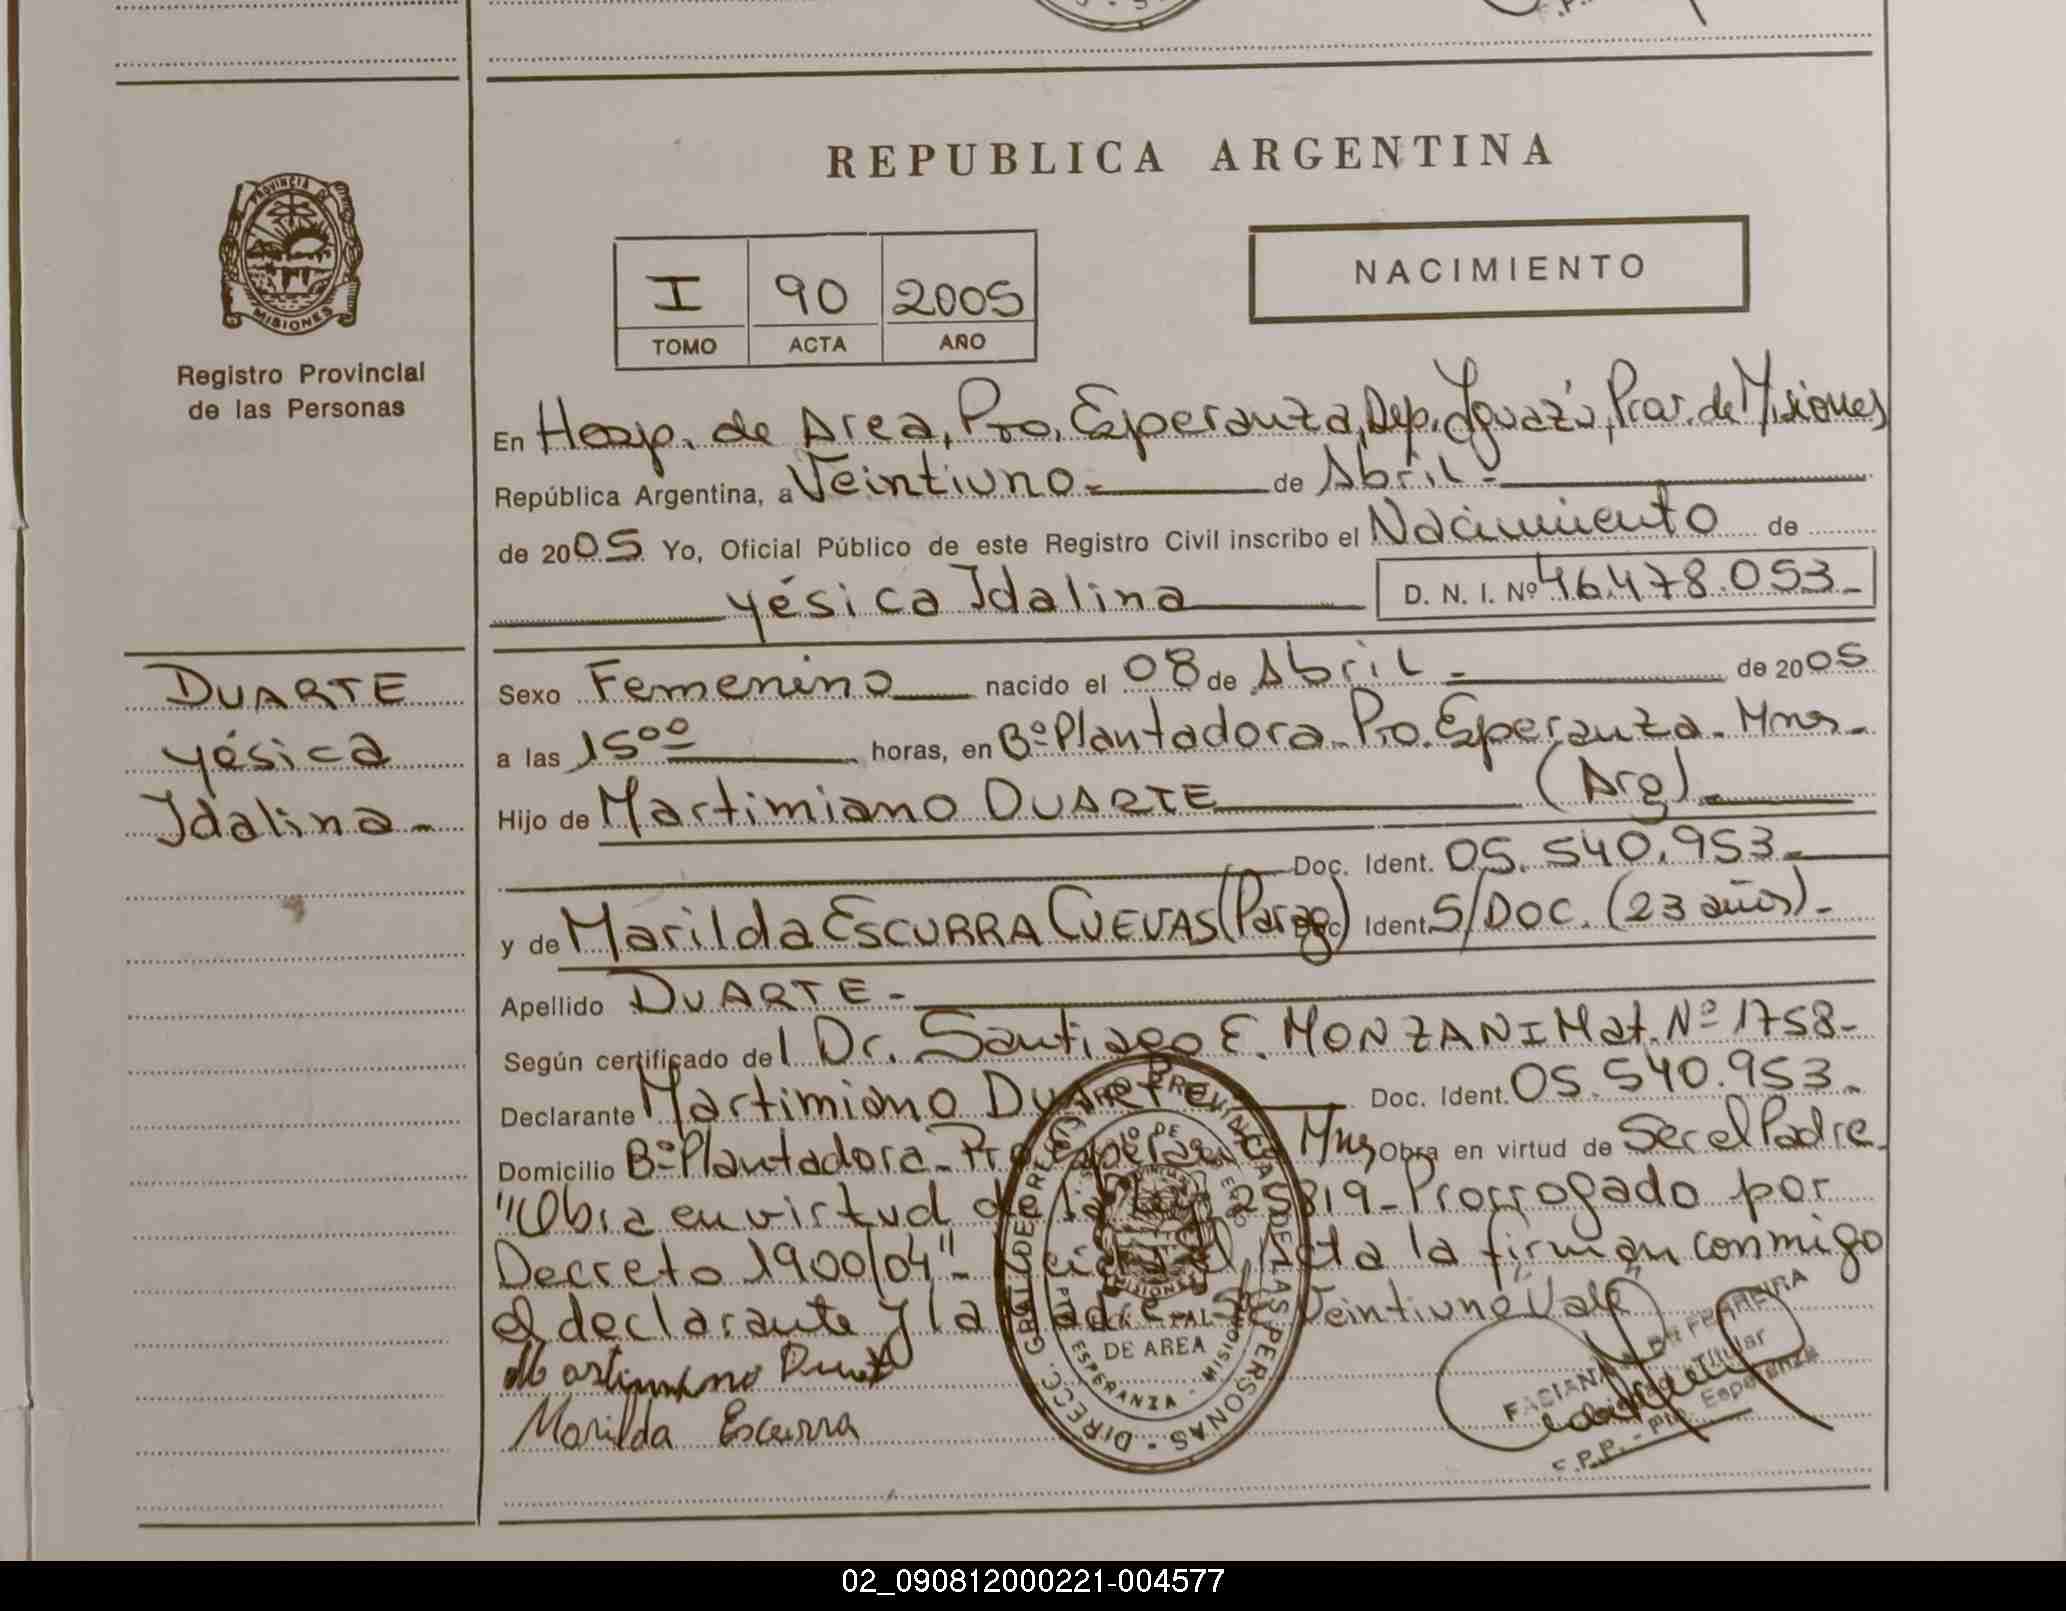 REPUBLICA ARGENTINA
PROVINCIA DE
MISIONES
Registro Provincial
de las Personas
I 90 2005
TOMO ACTA AÑO
NACIMIENTO
En Hosp. de Area, Pto. Esperanza, Dep. Iguazú, Prov. de Misiones
República Argentina, a Veintiuno - de Abril -
de 2005 Yo, Oficial Público de este Registro Civil inscribo el Nacimiento de
Yésica Idalina D. N. I. Nº 46.478.053 -
DUARTE
Yésica
Idalina -
Sexo Femenino nacido el 08 de Abril - de 2005
a las 15ºº horas, en Bº Plantadora - Pto. Esperanza - Mnes -
Hijo de Martimiano DUARTE (Arg) -
Doc. Ident. 05.540.953 -
y de Marilda ESCURRA CUEVAS (Parag) Doc Ident. S/DOC. (23 años) -
Apellido DUARTE -
Según certificado del Dr. Santiago E. MONZANI Mat. Nº 1758 -
Declarante Martimiano Duarte Doc. Ident. 05.540.953 -
Domicilio Bº Plantadora - Pto Esperanza Mns Obra en virtud de Ser el Padre -
"Obra en virtud de la Ley 25819 - Prorrogado por
Decreto 1900/04" - Acta la firman conmigo
el declarante y la Madre - Veintiuno "Vale"
Martimiano Duarte
Marilda Escurra
DIRECC. GRAL. DE REGISTRO PROVINCIAL DE LAS PERSONAS
DE AREA
ESPERANZA - MISIONES
FABIANA FERREIRA
Titular
F.P.P. - Pto. Esperanza
02_090812000221-004577